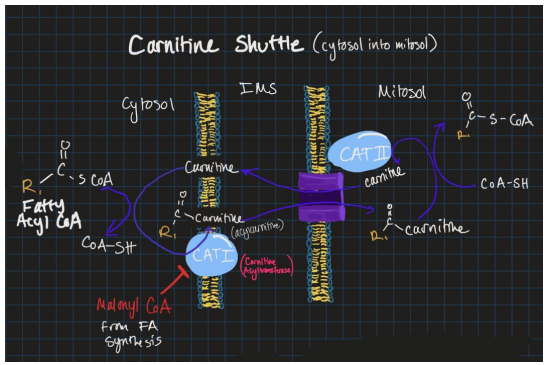 Carnitine Shuttle (cytosol into mitosol)
Cytosol
IMS
Mitosol
O
R₁ C S CoA
Fatty
Acyl CoA
CoA-SH
Carnitine
O
R₁ C - Carnitine
(acylcarnitine)
CAT I
(Carnitine
Acyltransferase)
Malonyl CoA
from FA
synthesis
CAT II
carnitine
O
R₁ C - S - CoA
CoA-SH
O
R₁ C - Carnitine